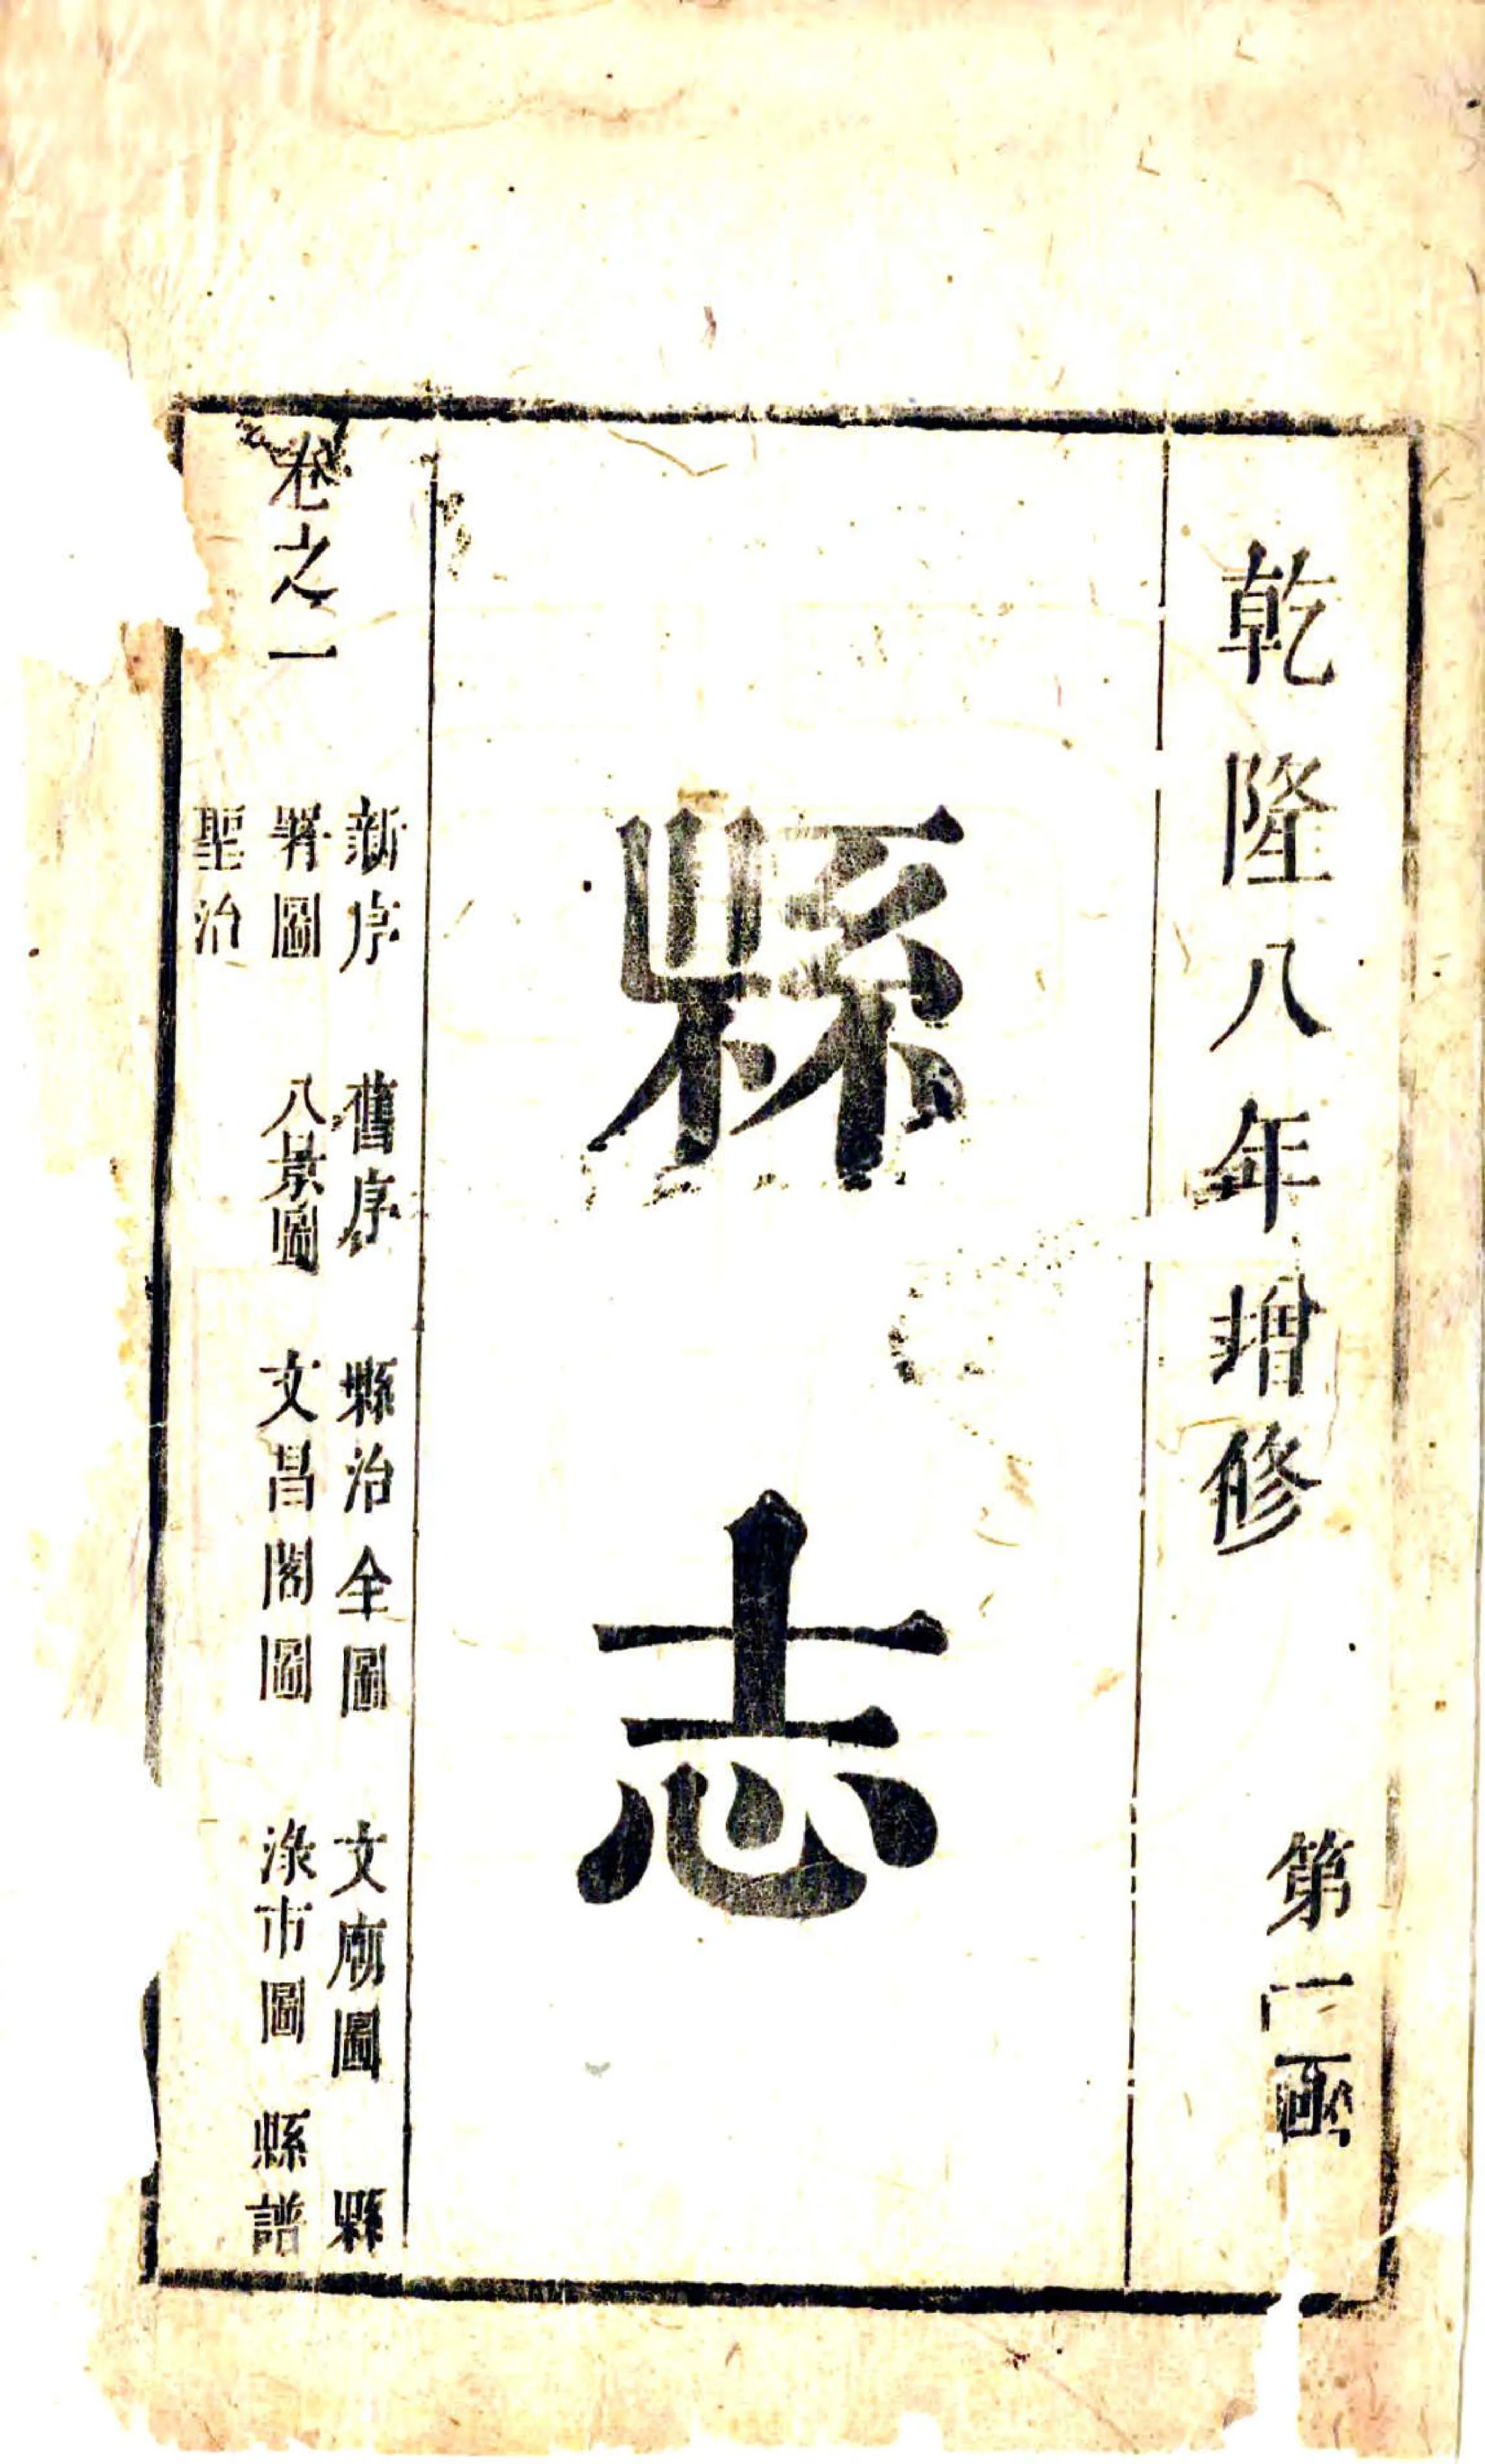 乾隆八年增修
第一函
縣志
卷之一
新序 舊序 縣治全圖 文廟圖 縣
署圖 八景圖 文昌閣圖 淥市圖 縣譜
聖治